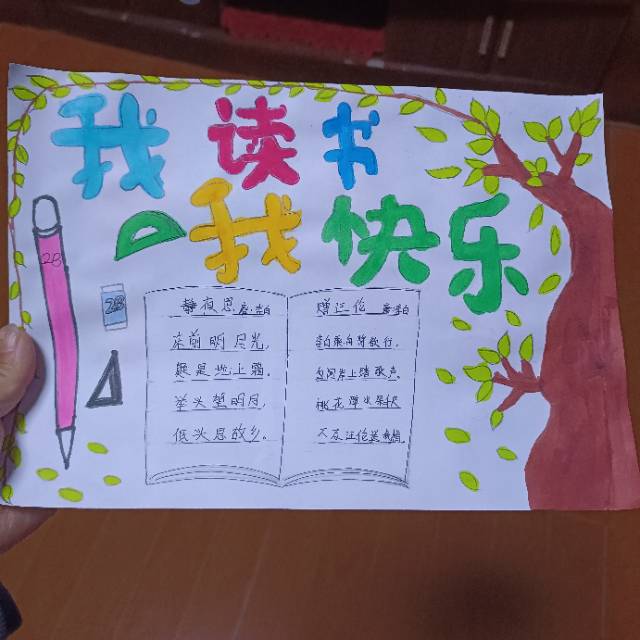 我读书
我快乐
2B
2B
静夜思 唐·李白
床前明月光,
疑是地上霜。
举头望明月,
低头思故乡。
赠汪伦 唐·李白
李白乘舟将欲行,
忽闻岸上踏歌声。
桃花潭水深千尺
不及汪伦送我情。